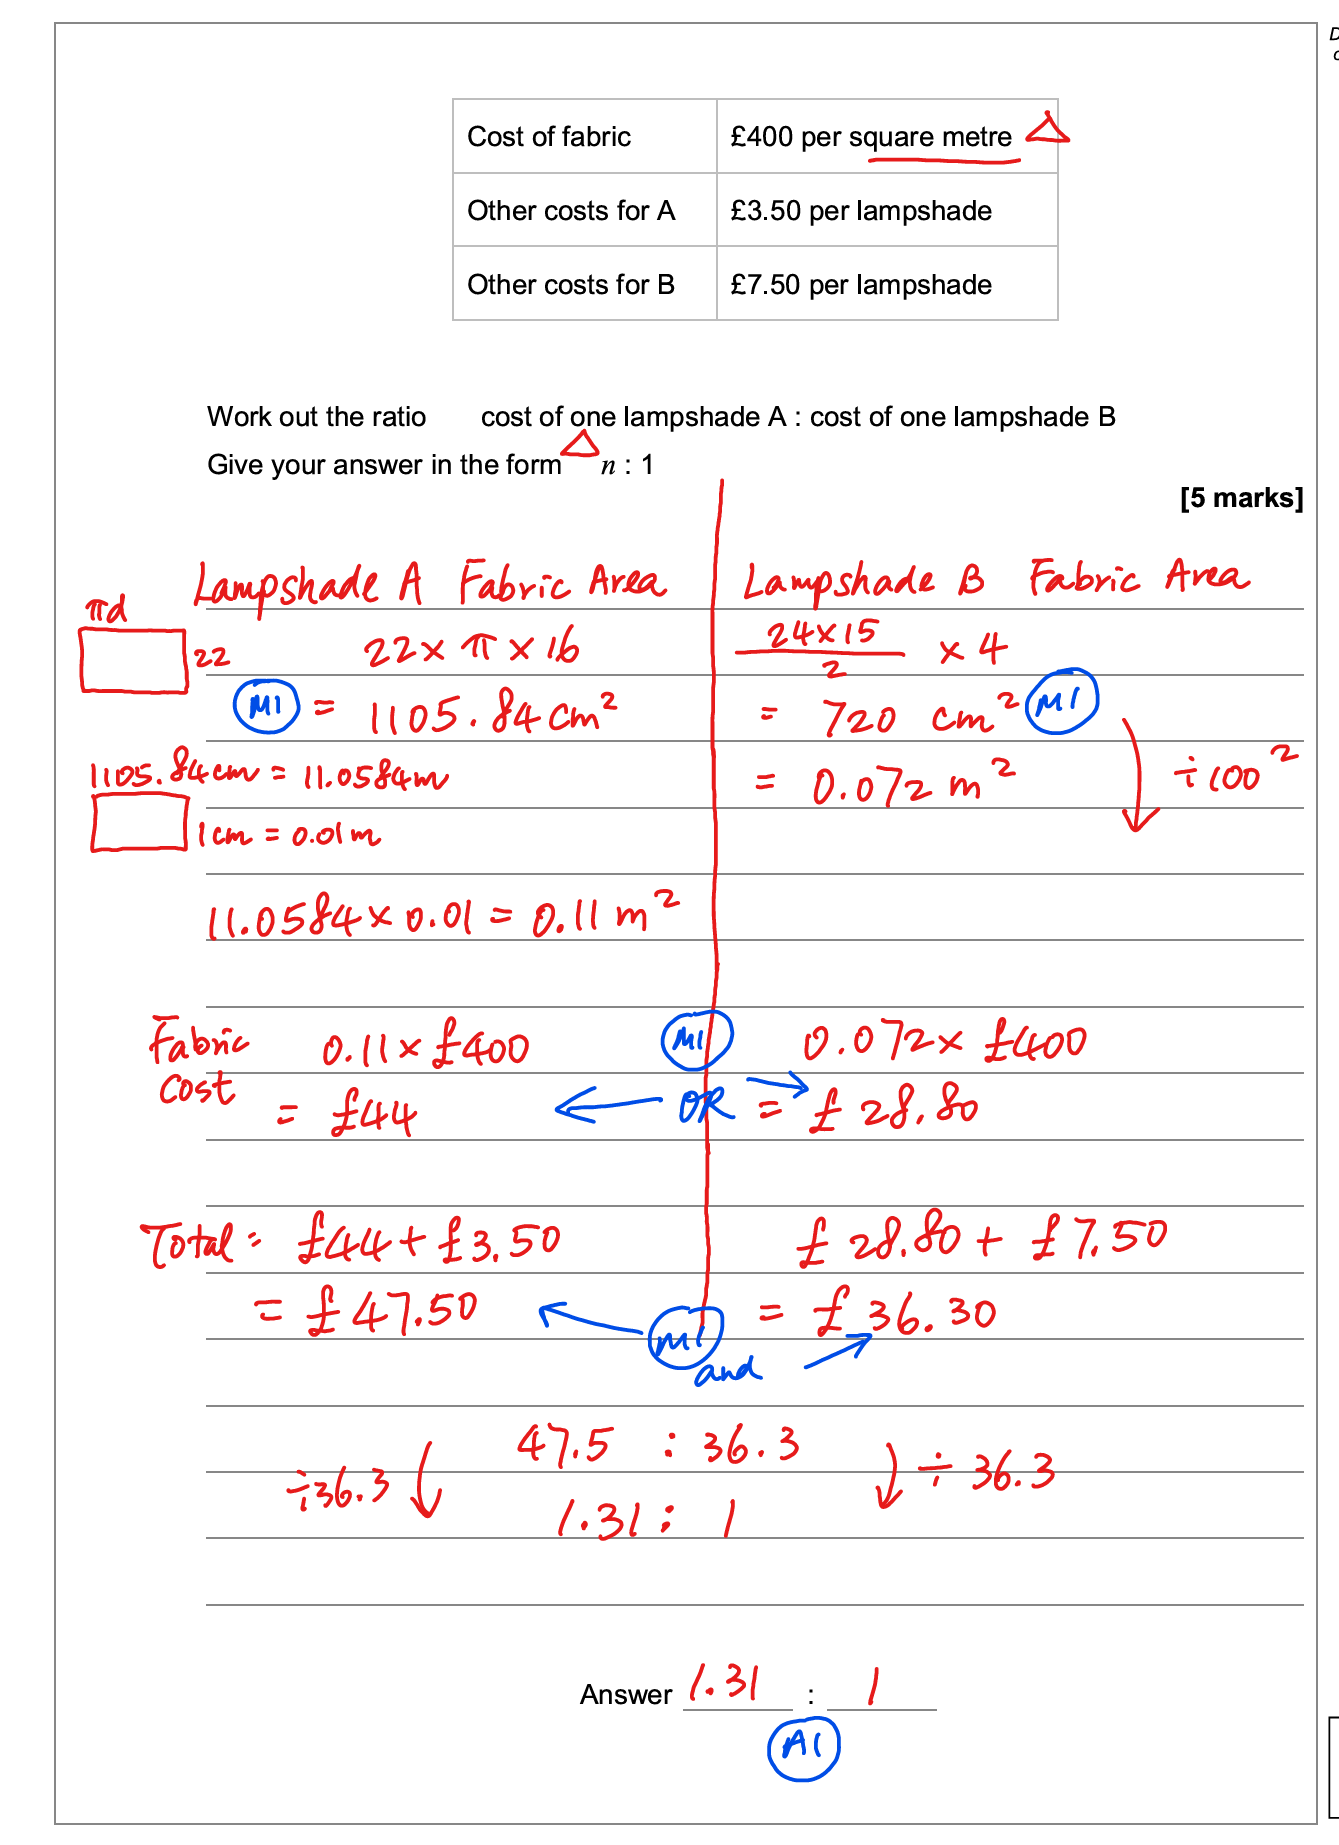 D
Cost of fabric £400 per square metre
Other costs for A £3.50 per lampshade
Other costs for B £7.50 per lampshade
Work out the ratio cost of one lampshade A : cost of one lampshade B
Give your answer in the form n : 1
[5 marks]
Lampshade A Fabric Area
πd
22
22 × π × 16
M1 = 1105.84 cm²
1105.84cm = 11.0584m
1cm = 0.01m
11.0584 × 0.01 = 0.11 m²
Lampshade B Fabric Area
24×15/2 × 4
= 720 cm² M1
= 0.072 m² ÷100²
Fabric Cost 0.11 × £400
= £44
M1
OR
0.072 × £400
= £28.80
Total = £44 + £3.50
= £47.50
M1
and
£28.80 + £7.50
= £36.30
47.5 : 36.3
÷36.3 ÷36.3
1.31 : 1
Answer 1.31 : 1
A1